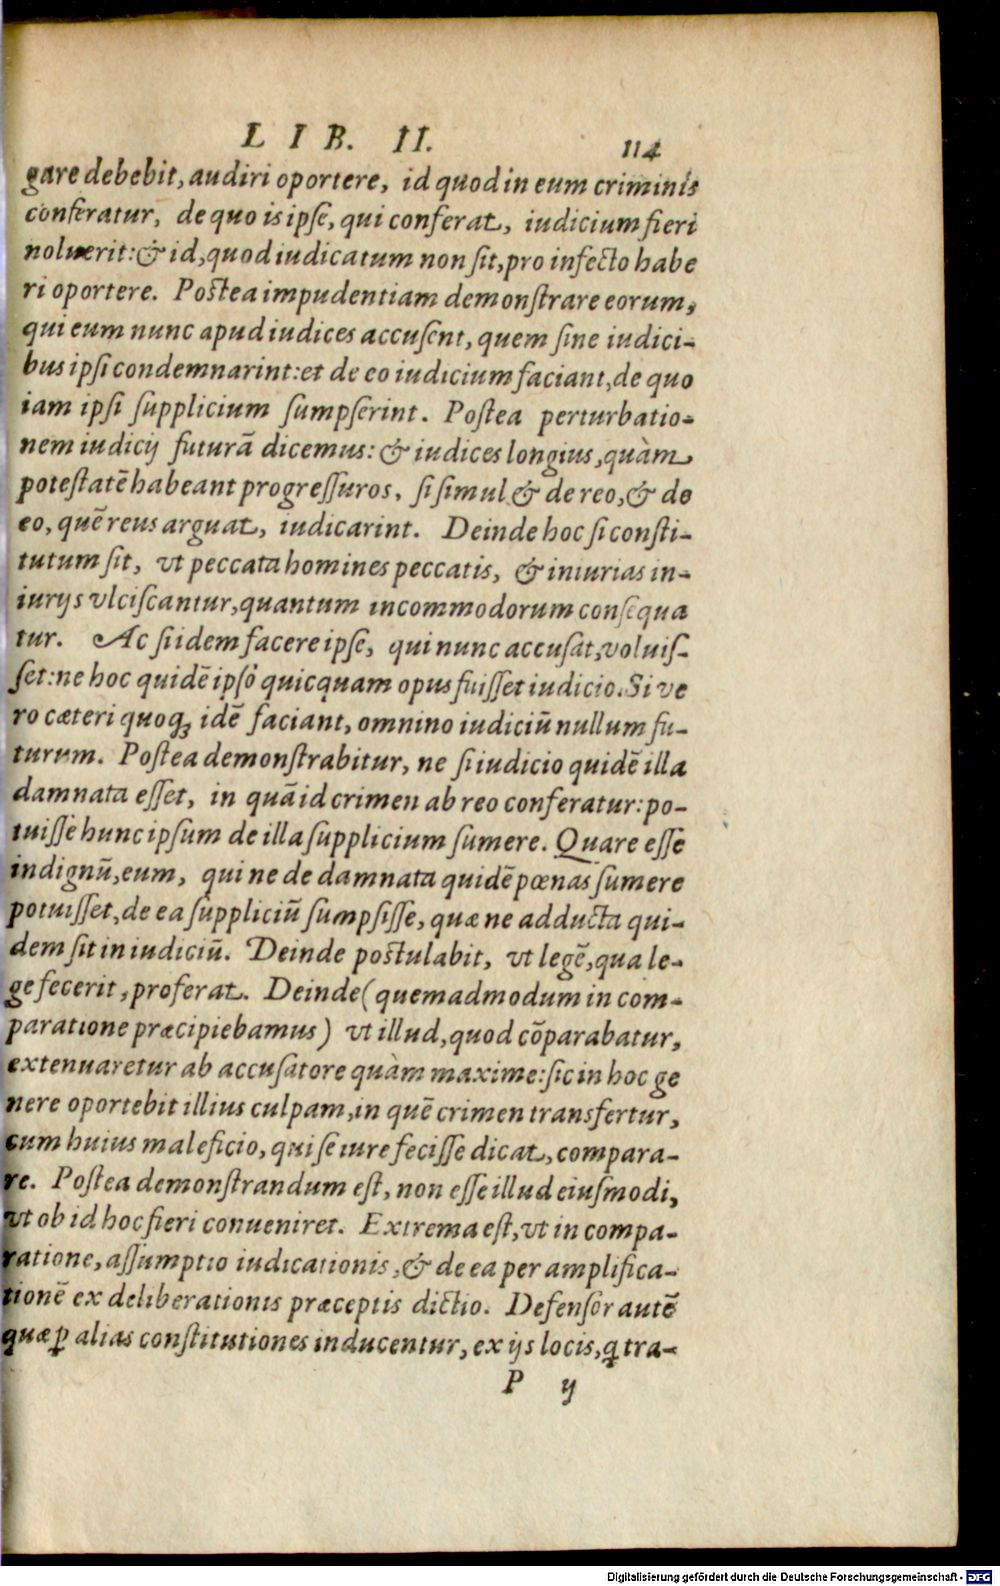 LIB. II. 114
gare debebit, audiri oportere, id quod in eum criminis
conferatur, de quo is ipse, qui conferat, iudicium fieri
noluerit: & id, quod iudicatum non sit, pro infecto habe
ri oportere. Postea impudentiam demonstrare eorum,
qui eum nunc apud iudices accusent, quem sine iudici-
bus ipsi condemnarint: et de eo iudicium faciant, de quo
iam ipsi supplicium sumpserint. Postea perturbatio-
nem iudicij futurā dicemus: & iudices longius, quàm
potestatē habeant progressuros, si simul & de reo, & de
eo, quē reus arguat, iudicarint. Deinde hoc si consti-
tutum sit, vt peccata homines peccatis, & iniurias in-
iurijs vlciscantur, quantum incommodorum consequa
tur. Ac si idem facere ipse, qui nunc accusat, voluis-
set: ne hoc quidē ipso quicquam opus fuisset iudicio. Si ve
ro cæteri quoq; idē faciant, omnino iudiciū nullum fu-
turum. Postea demonstrabitur, ne si iudicio quidē illa
damnata esset, in quā id crimen ab reo conferatur: po-
tuisse hunc ipsum de illa supplicium sumere. Quare esse
indignū, eum, qui ne de damnata quidē pœnas sumere
potuisset, de ea suppliciū sumpsisse, quæ ne adducta qui-
dem sit in iudiciū. Deinde postulabit, vt legē, qua le-
ge fecerit, proferat. Deinde (quemadmodum in com-
paratione præcipiebamus) vt illud, quod cōparabatur,
extenuaretur ab accusatore quàm maxime: sic in hoc ge
nere oportebit illius culpam, in quē crimen transfertur,
cum huius maleficio, qui se iure fecisse dicat, compara-
re. Postea demonstrandum est, non esse illud eiusmodi,
vt ob id hoc fieri conueniret. Extrema est, vt in compa-
ratione, assumptio iudicationis, & de ea per amplifica-
tionē ex deliberationis præceptis dictio. Defensor autē
quæ ꝑ alias constitutiones inducentur, ex ijs locis, q̃ tra-
P ij
Digitalisierung gefördert durch die Deutsche Forschungsgemeinschaft - DFG